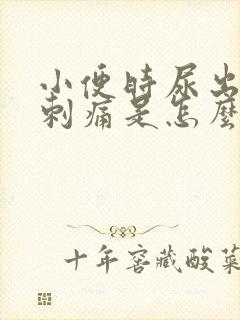 小便时尿出
刺痛是怎麼
十年窖藏酸菜